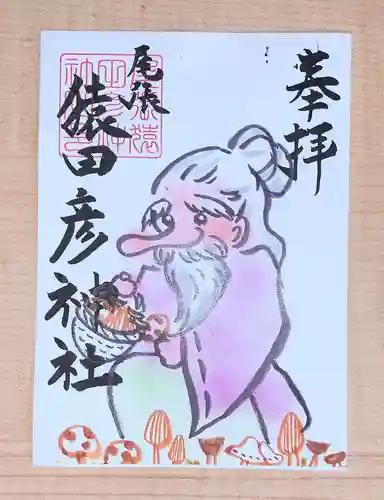 奉拝
尾張
猿田彦神社